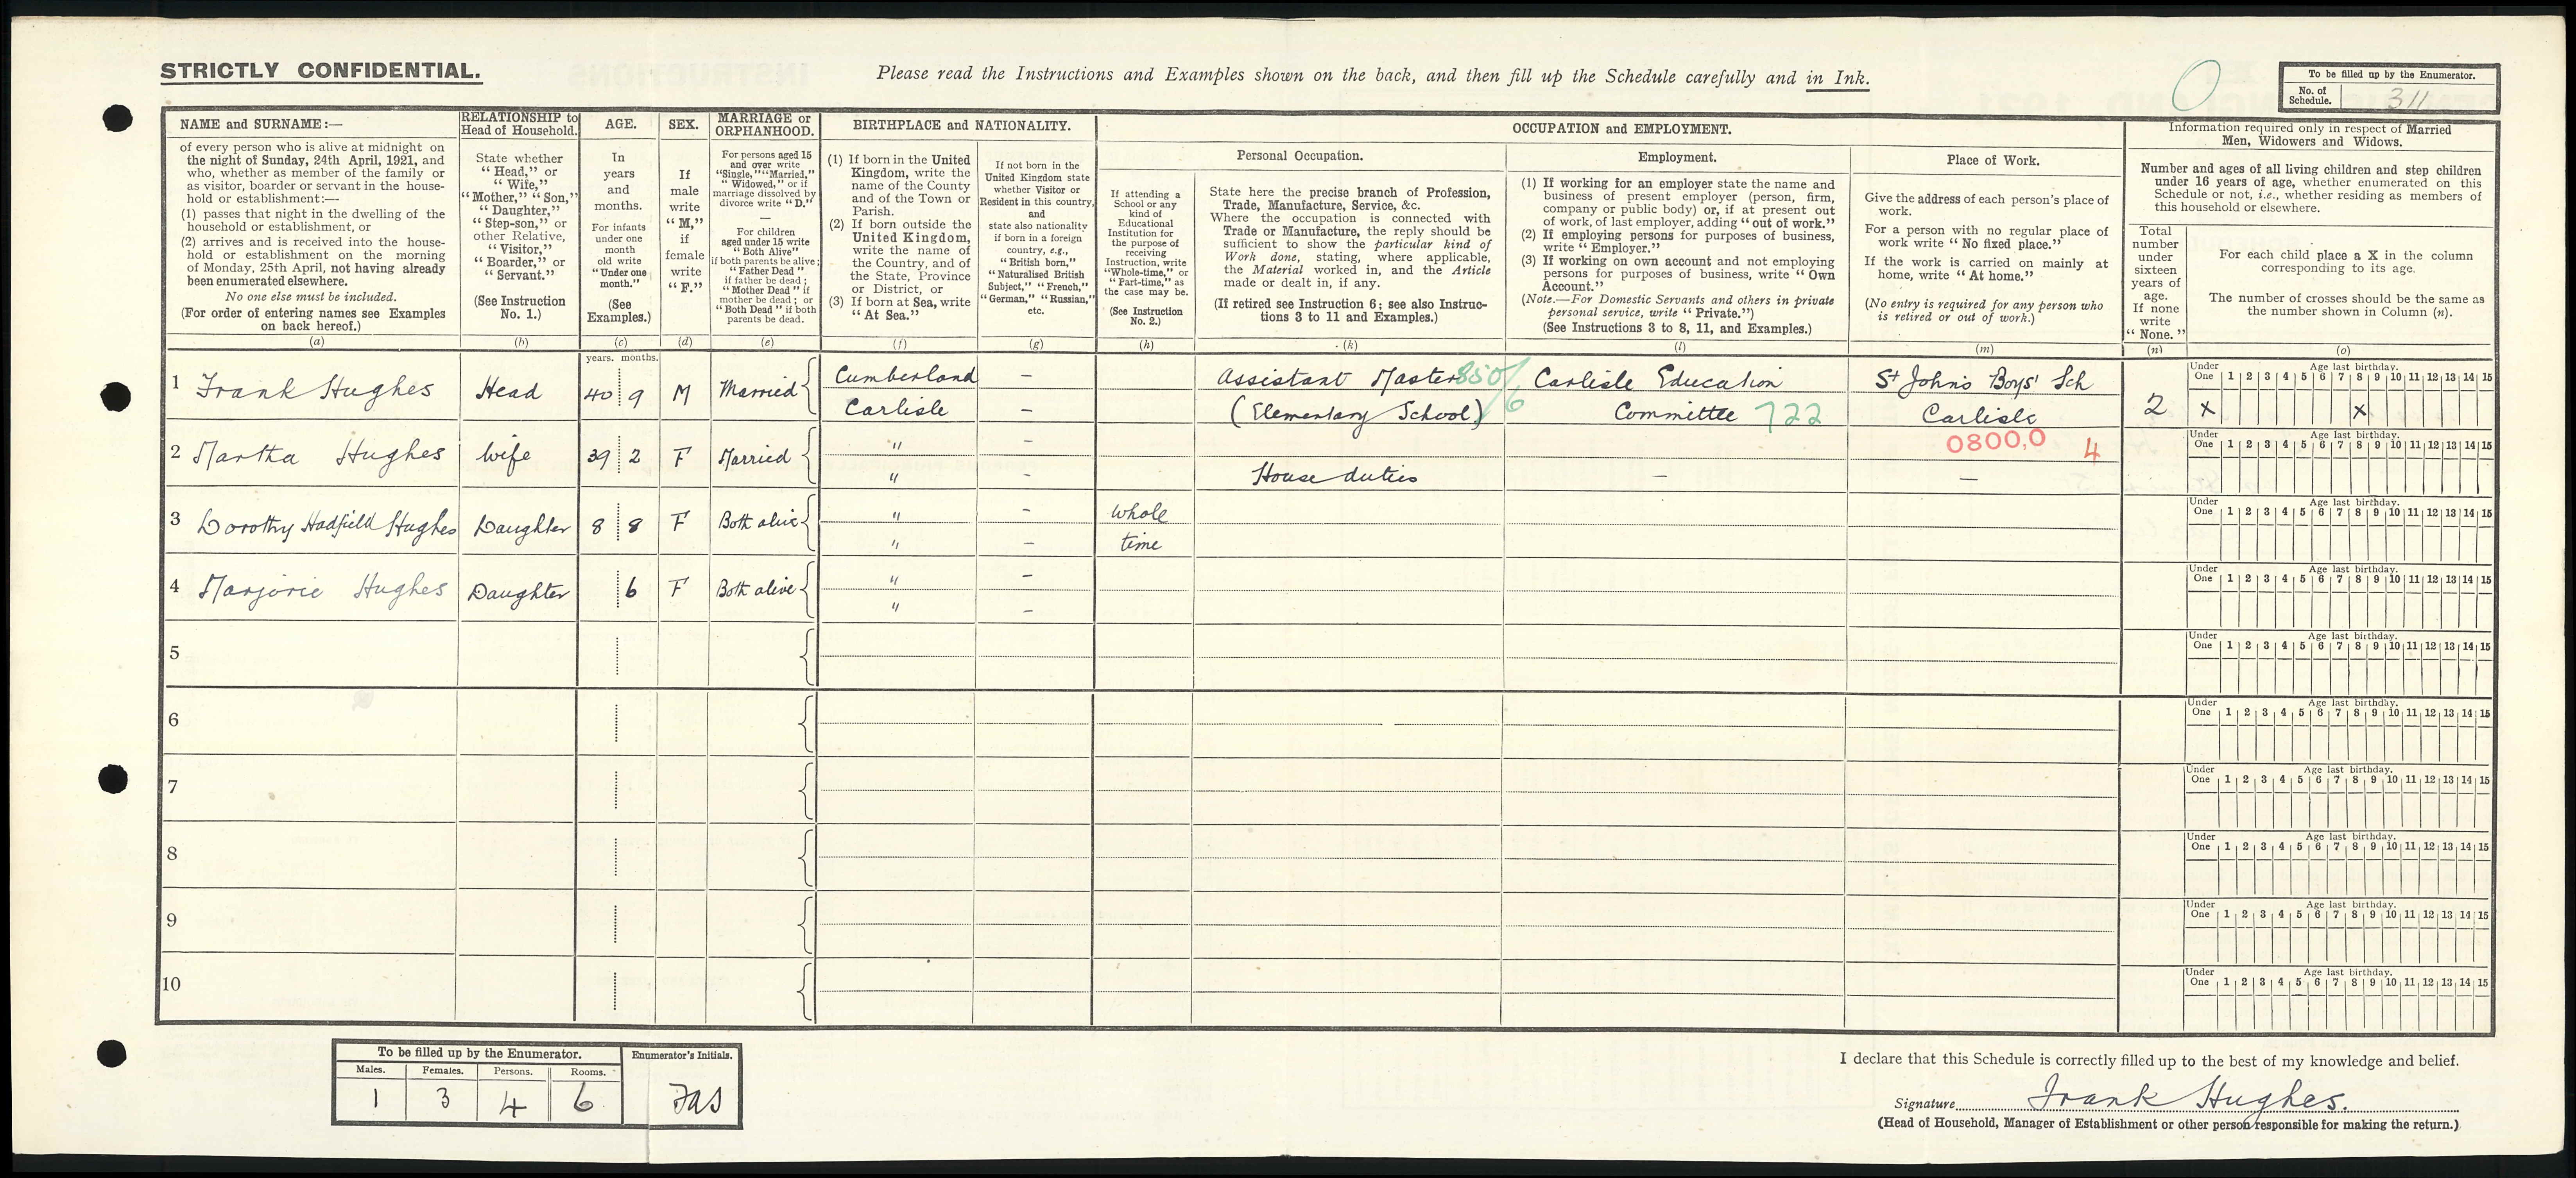 STRICTLY CONFIDENTIAL.
Please read the Instructions and Examples shown on the back, and then fill up the Schedule carefully and in Ink.
To be filled up by the Enumerator.
No. of Schedule. 311
NAME and SURNAME:—
of every person who is alive at midnight on
the night of Sunday, 24th April, 1921, and
who, whether as member of the family or
as visitor, boarder or servant in the house-
hold or establishment:—
(1) passes that night in the dwelling of the
household or establishment, or
(2) arrives and is received into the house-
hold or establishment on the morning
of Monday, 25th April, not having already
been enumerated elsewhere.
No one else must be included.
(For order of entering names see Examples
on back hereof.)
(a)
RELATIONSHIP to
Head of Household.
State whether
"Head," or
"Wife,"
"Mother," "Son,"
"Daughter,"
"Step-son," or
other Relative,
"Visitor,"
"Boarder," or
"Servant."
(See Instruction
No. 1.)
(b)
AGE.
In
years
and
months.
For infants
under one
month
old write
"Under one
month."
(See
Examples.)
(c)
SEX.
If
male
write
"M,"
if
female
write
"F."
(d)
MARRIAGE or
ORPHANHOOD.
For persons aged 15
and over write
"Single," "Married,"
"Widowed," or if
marriage dissolved by
divorce write "D."
—
For children
aged under 15 write
"Both Alive"
if both parents be alive;
"Father Dead"
if father be dead;
"Mother Dead" if
mother be dead; or
"Both Dead" if both
parents be dead.
(e)
BIRTHPLACE and NATIONALITY.
(1) If born in the United
Kingdom, write the
name of the County
and of the Town or
Parish.
(2) If born outside the
United Kingdom,
write the name of
the Country, and of
the State, Province
or District, or
(3) If born at Sea, write
"At Sea."
(f)
If not born in the
United Kingdom state
whether Visitor or
Resident in this country,
and
state also nationality
if born in a foreign
country, e.g.,
"British born,"
"Naturalised British
Subject," "French,"
"German," "Russian,"
etc.
(g)
OCCUPATION and EMPLOYMENT.
If attending a
School or any
kind of
Educational
Institution for
the purpose of
receiving
Instruction, write
"Whole-time," or
"Part-time," as
the case may be.
(See Instruction
No. 2.)
(h)
Personal Occupation.
State here the precise branch of Profession,
Trade, Manufacture, Service, &c.
Where the occupation is connected with
Trade or Manufacture, the reply should be
sufficient to show the particular kind of
Work done, stating, where applicable,
the Material worked in, and the Article
made or dealt in, if any.
(If retired see Instruction 6; see also Instruc-
tions 3 to 11 and Examples.)
(k)
Employment.
(1) If working for an employer state the name and
business of present employer (person, firm,
company or public body) or, if at present out
of work, of last employer, adding "out of work."
(2) If employing persons for purposes of business,
write "Employer."
(3) If working on own account and not employing
persons for purposes of business, write "Own
Account."
(Note.—For Domestic Servants and others in private
personal service, write "Private.")
(See Instructions 3 to 8, 11, and Examples.)
(l)
Place of Work.
Give the address of each person's place of
work.
For a person with no regular place of
work write "No fixed place."
If the work is carried on mainly at
home, write "At home."
(No entry is required for any person who
is retired or out of work.)
(m)
Information required only in respect of Married
Men, Widowers and Widows.
Number and ages of all living children and step children
under 16 years of age, whether enumerated on this
Schedule or not, i.e., whether residing as members of
this household or elsewhere.
Total
number
under
sixteen
years of
age.
If none
write
"None."
(n)
For each child place a X in the column
corresponding to its age.
The number of crosses should be the same as
the number shown in Column (n).
(o)
years. months.
Under One Age last birthday. 1 2 3 4 5 6 7 8 9 10 11 12 13 14 15
1 Frank Hughes Head 40 9 M Married Cumberland — Assistant Master 850/6 Carlisle Education St John's Boys' Sch
Carlisle — (Elementary School) Committee 722 Carlisle 2 X X
0800,0 4
Under One Age last birthday. 1 2 3 4 5 6 7 8 9 10 11 12 13 14 15
2 Martha Hughes Wife 39 2 F Married " —
" — House duties — —
Under One Age last birthday. 1 2 3 4 5 6 7 8 9 10 11 12 13 14 15
3 Dorothy Hadfield Hughes Daughter 8 8 F Both alive " — whole
" — time
Under One Age last birthday. 1 2 3 4 5 6 7 8 9 10 11 12 13 14 15
4 Marjorie Hughes Daughter 6 F Both alive " —
" —
Under One Age last birthday. 1 2 3 4 5 6 7 8 9 10 11 12 13 14 15
5
Under One Age last birthday. 1 2 3 4 5 6 7 8 9 10 11 12 13 14 15
6
Under One Age last birthday. 1 2 3 4 5 6 7 8 9 10 11 12 13 14 15
7
Under One Age last birthday. 1 2 3 4 5 6 7 8 9 10 11 12 13 14 15
8
Under One Age last birthday. 1 2 3 4 5 6 7 8 9 10 11 12 13 14 15
9
Under One Age last birthday. 1 2 3 4 5 6 7 8 9 10 11 12 13 14 15
10
Under One Age last birthday. 1 2 3 4 5 6 7 8 9 10 11 12 13 14 15
To be filled up by the Enumerator. Enumerator's Initials.
Males. Females. Persons. Rooms.
1 3 4 6
I declare that this Schedule is correctly filled up to the best of my knowledge and belief.
Signature Frank Hughes.
(Head of Household, Manager of Establishment or other person responsible for making the return.)